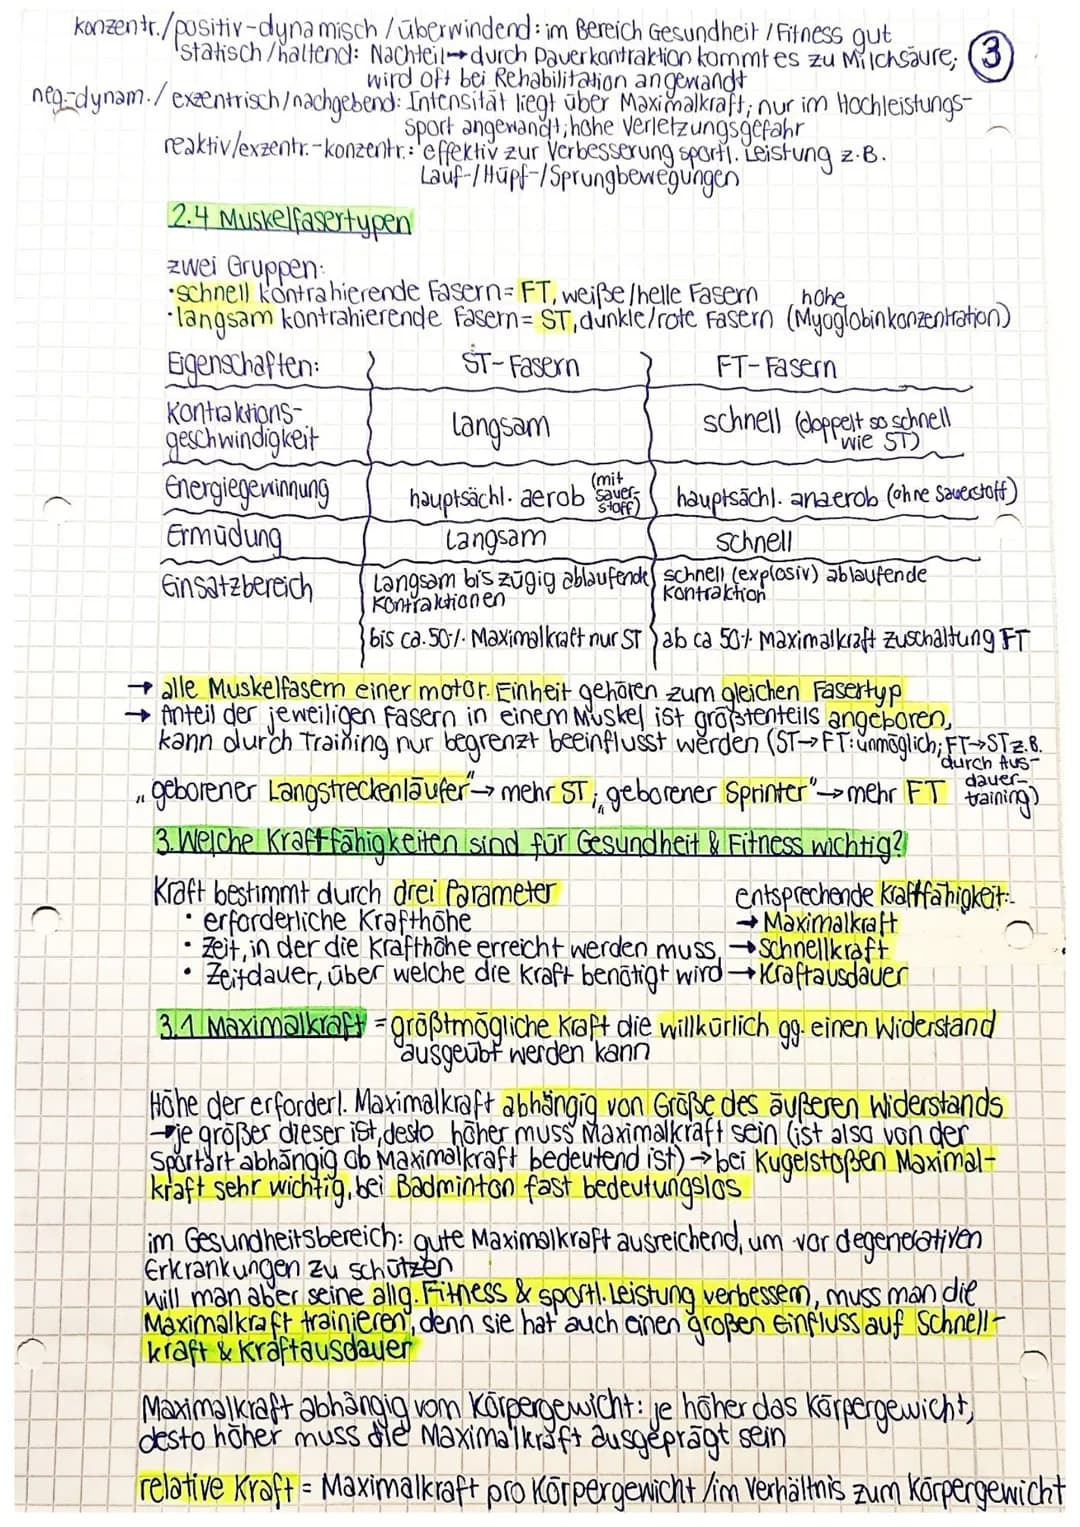 konzentr./positiv-dynamisch/überwindend: im Bereich Gesundheit/Fitness gut
statisch/haltend: Nachteil → durch Dauerkontraktion kommt es zu Milchsäure; ③
wird oft bei Rehabilitation angewandt
neg.-dynam./exzentrisch/nachgebend: Intensität liegt über Maximalkraft; nur im Hochleistungs-
sport angewandt; hohe Verletzungsgefahr
reaktiv/exzentr.-konzentr.: effektiv zur Verbesserung sportl. Leistung z.B.
Lauf-/Hüpf-/Sprungbewegungen
2.4 Muskelfasertypen
zwei Gruppen:
• schnell kontrahierende Fasern = FT, weiße/helle Fasern
• langsam kontrahierende Fasern = ST, dunkle/rote Fasern (hohe Myoglobinkonzentration)
Eigenschaften: ST-Fasern FT-Fasern
Kontraktions-
geschwindigkeit langsam schnell (doppelt so schnell
wie ST)
Energiegewinnung hauptsächl. aerob (mit Sauer-stoff) hauptsächl. anaerob (ohne Sauerstoff)
Ermüdung langsam schnell
Einsatzbereich langsam bis zügig ablaufende schnell (explosiv) ablaufende
Kontraktionen Kontraktion
bis ca. 50% Maximalkraft nur ST ab ca 50% Maximalkraft Zuschaltung FT
→ alle Muskelfasern einer motor. Einheit gehören zum gleichen Fasertyp
→ Anteil der jeweiligen Fasern in einem Muskel ist größtenteils angeboren,
kann durch Training nur begrenzt beeinflusst werden (ST→FT: unmöglich; FT→ST z.B.
durch Aus-
dauer-
training)
„geborener Langstreckenläufer" → mehr ST; „geborener Sprinter" → mehr FT
3. Welche Kraftfähigkeiten sind für Gesundheit & Fitness wichtig?
Kraft bestimmt durch drei Parameter entsprechende Kraftfähigkeit:
• erforderliche Krafthöhe → Maximalkraft
• Zeit, in der die Krafthöhe erreicht werden muss → Schnellkraft
• Zeitdauer, über welche die Kraft benötigt wird → Kraftausdauer
3.1 Maximalkraft = größtmögliche Kraft die willkürlich gg. einen Widerstand
ausgeübt werden kann
Höhe der erforderl. Maximalkraft abhängig von Größe des äußeren Widerstands
→ je größer dieser ist, desto höher muss Maximalkraft sein (ist also von der
Sportart abhängig ob Maximalkraft bedeutend ist) → bei Kugelstoßen Maximal-
kraft sehr wichtig, bei Badminton fast bedeutungslos
im Gesundheitsbereich: gute Maximalkraft ausreichend, um vor degenerativen
Erkrankungen zu schützen
will man aber seine allg. Fitness & sportl. Leistung verbessern, muss man die
Maximalkraft trainieren, denn sie hat auch einen großen Einfluss auf Schnell-
kraft & Kraftausdauer
Maximalkraft abhängig vom Körpergewicht: je höher das Körpergewicht,
desto höher muss die Maximalkraft ausgeprägt sein
relative Kraft = Maximalkraft pro Körpergewicht/im Verhältnis zum Körpergewicht